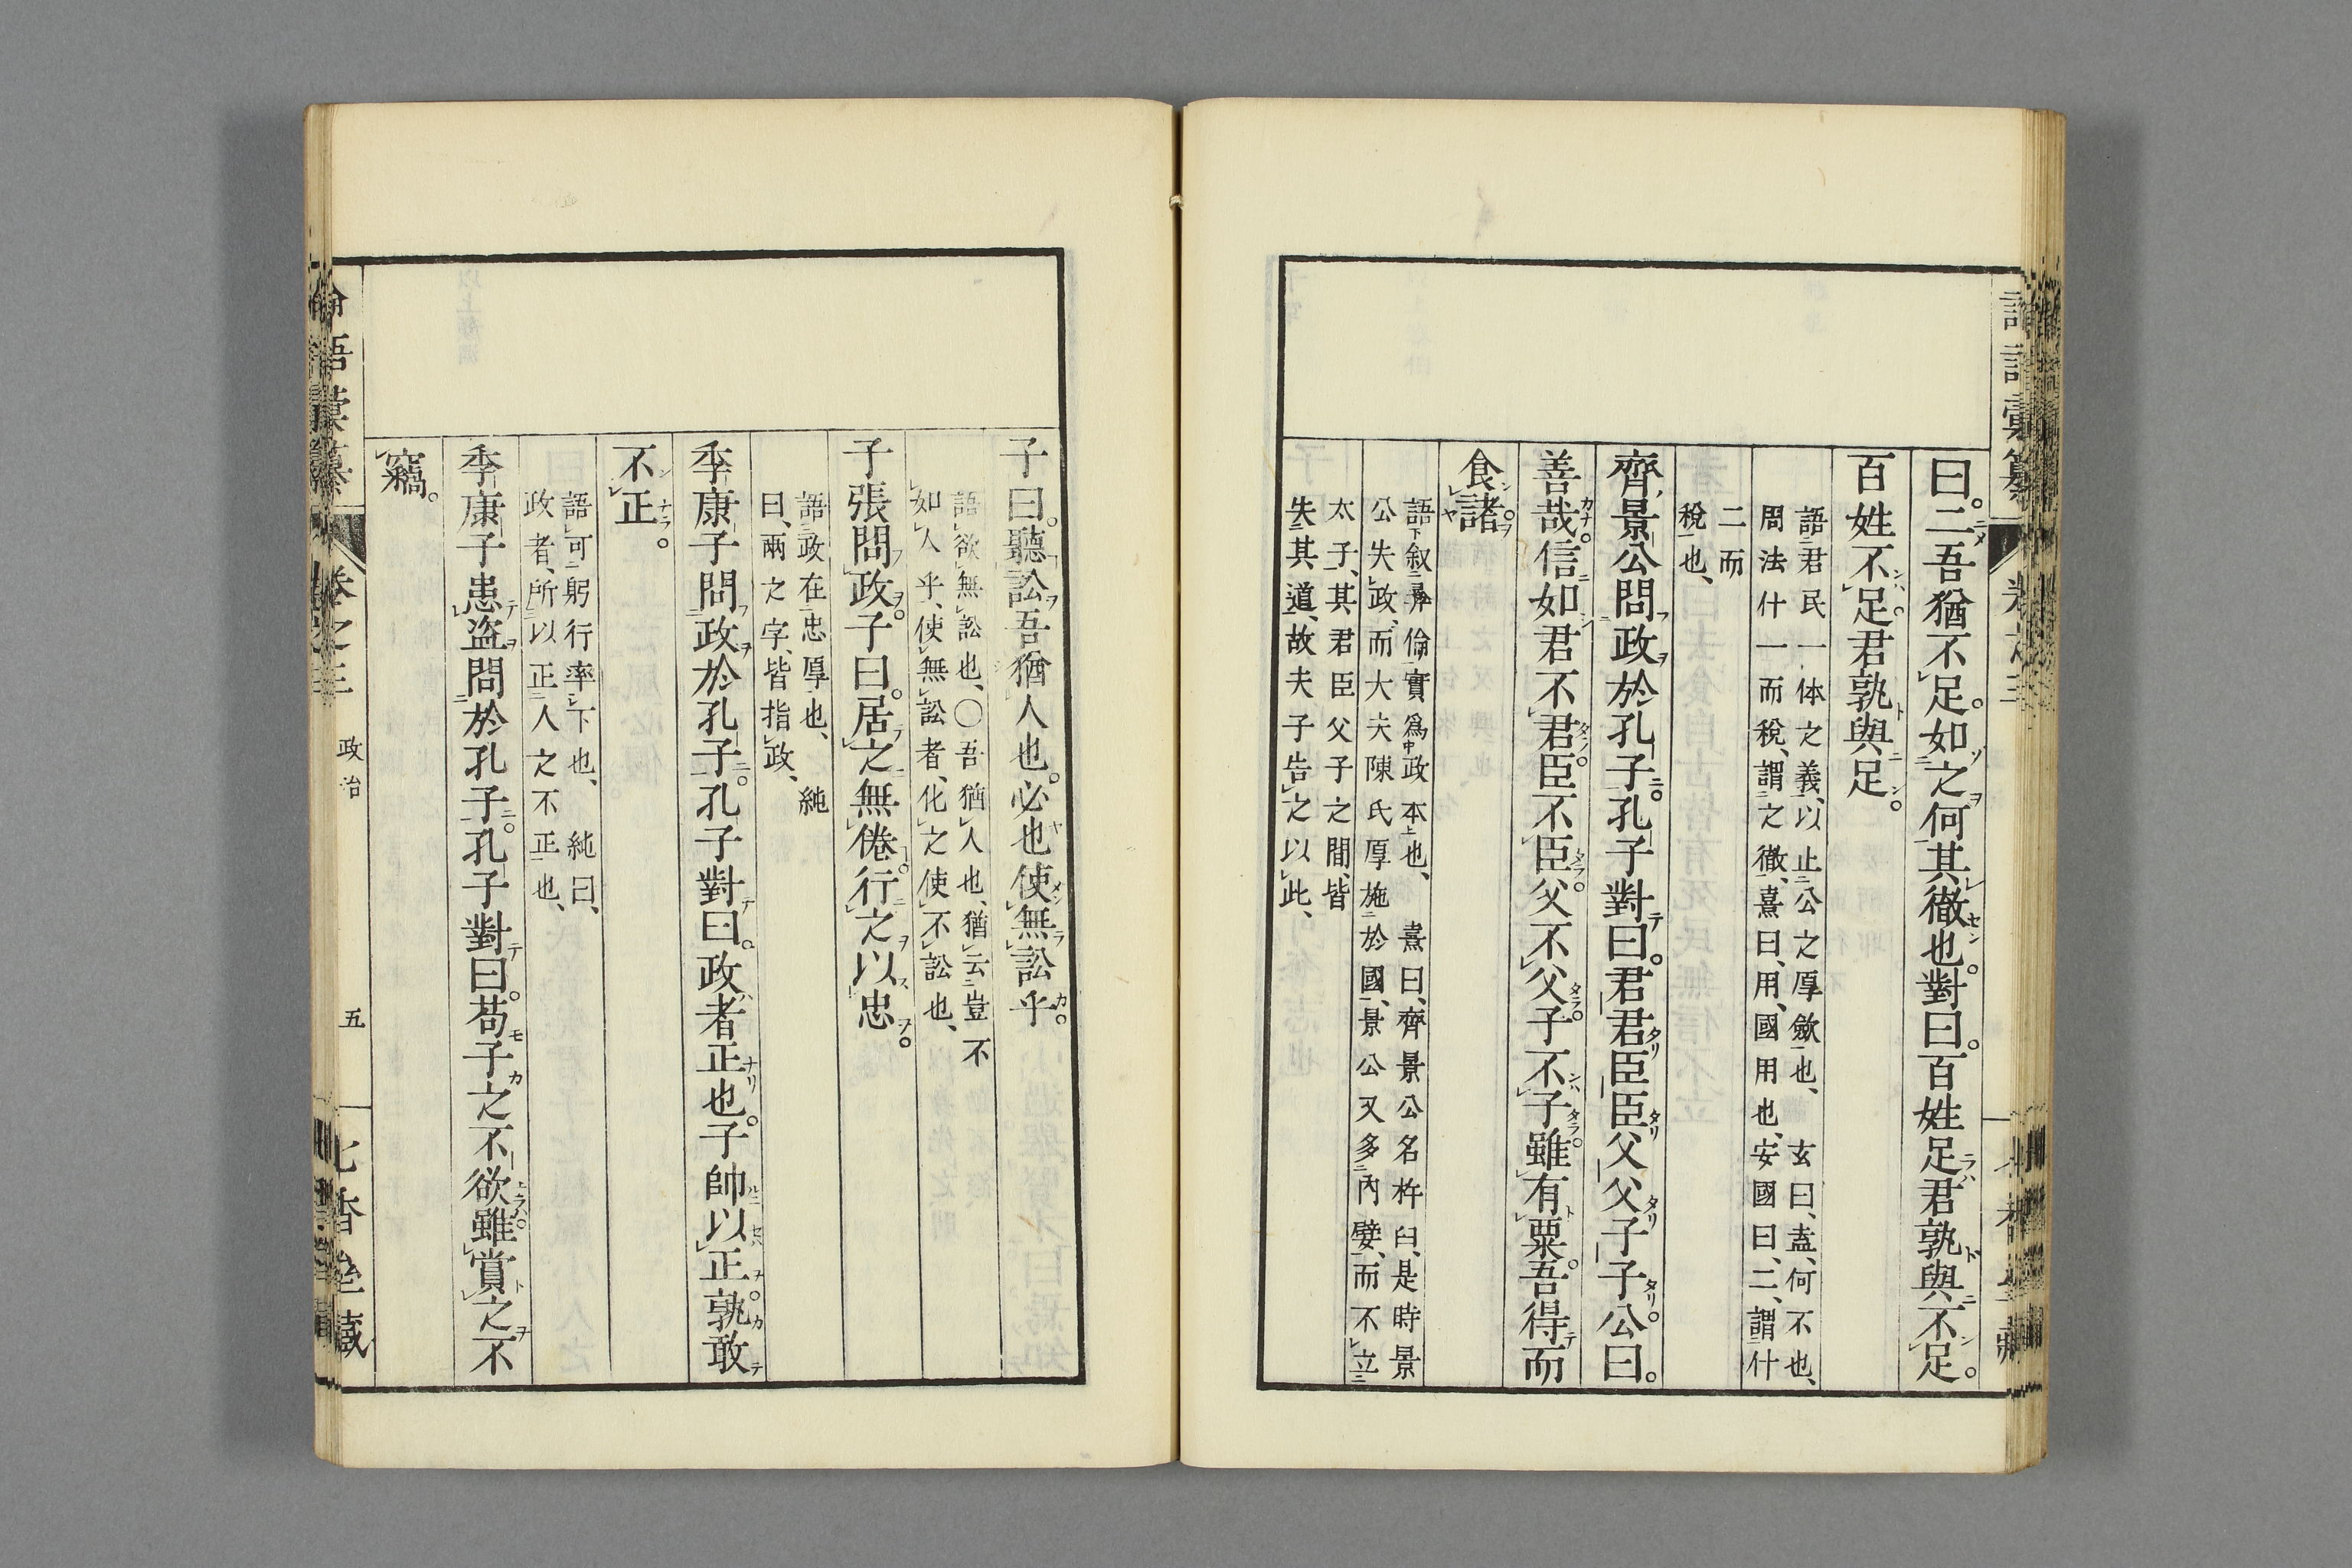 曰。二吾猶不足。如之何其徹也。對曰。百姓足君孰與不足。
百姓不足。君孰與足。
語君民一体之義、以止公之厚斂也、玄曰、盍、何不也、
周法什一而稅、謂之徹、熹曰、用、國用也、安國曰、二、謂什
二而
稅也、
齊景公問政於孔子。孔子對曰。君君臣臣父父子子。公曰。
善哉。信如君不君。臣不臣。父不父。子不子。雖有粟。吾得而
食諸。
語叙彝倫實爲政本也、熹曰、齊景公名杵臼、是時景
公失政、而大夫陳氏厚施於國、景公又多內嬖、而不立
太子、其君臣父子之間、皆
失其道、故夫子告之以此、
子曰。聽訟吾猶人也。必也使無訟乎。
語欲無訟也、〇吾猶人也、猶云豈不
如人乎、使無訟者、化之使不訟也、
子張問政。子曰。居之無倦。行之以忠。
語政在忠厚也、純
曰、兩之字、皆指政、
季康子問政於孔子。孔子對曰。政者正也。子帥以正。孰敢
不正。
語可躬行率下也、純曰、
政者、所以正人之不正也、
季康子患盜問於孔子。孔子對曰。苟子之不欲。雖賞之不
竊。
論語彙纂
卷之三
政治
五